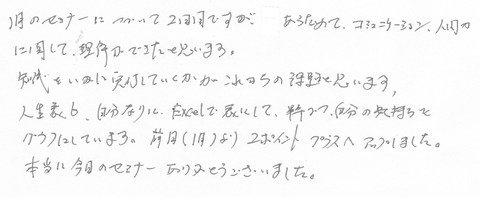 1月のセミナーに ついて 2回目ですが あらためて、コミュニケーション、人間力
に関して、理解ができたと思います。
知識をいかに実付していくかが これからの課題と思います。
人生表も、自分なりに、Excelで表にして、 自分の気持ちを
グラフにしています。前回(1月)より 2ポイント プラスへ アップしました。
本当に今日のセミナー ありがとうございました。